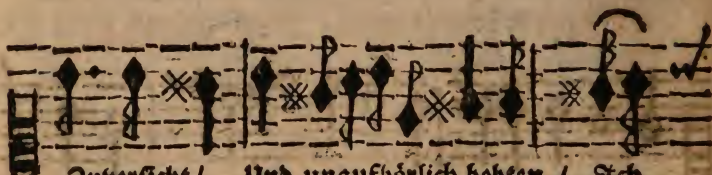 Zuversicht / Und unaufhörlich hoffen / Ich